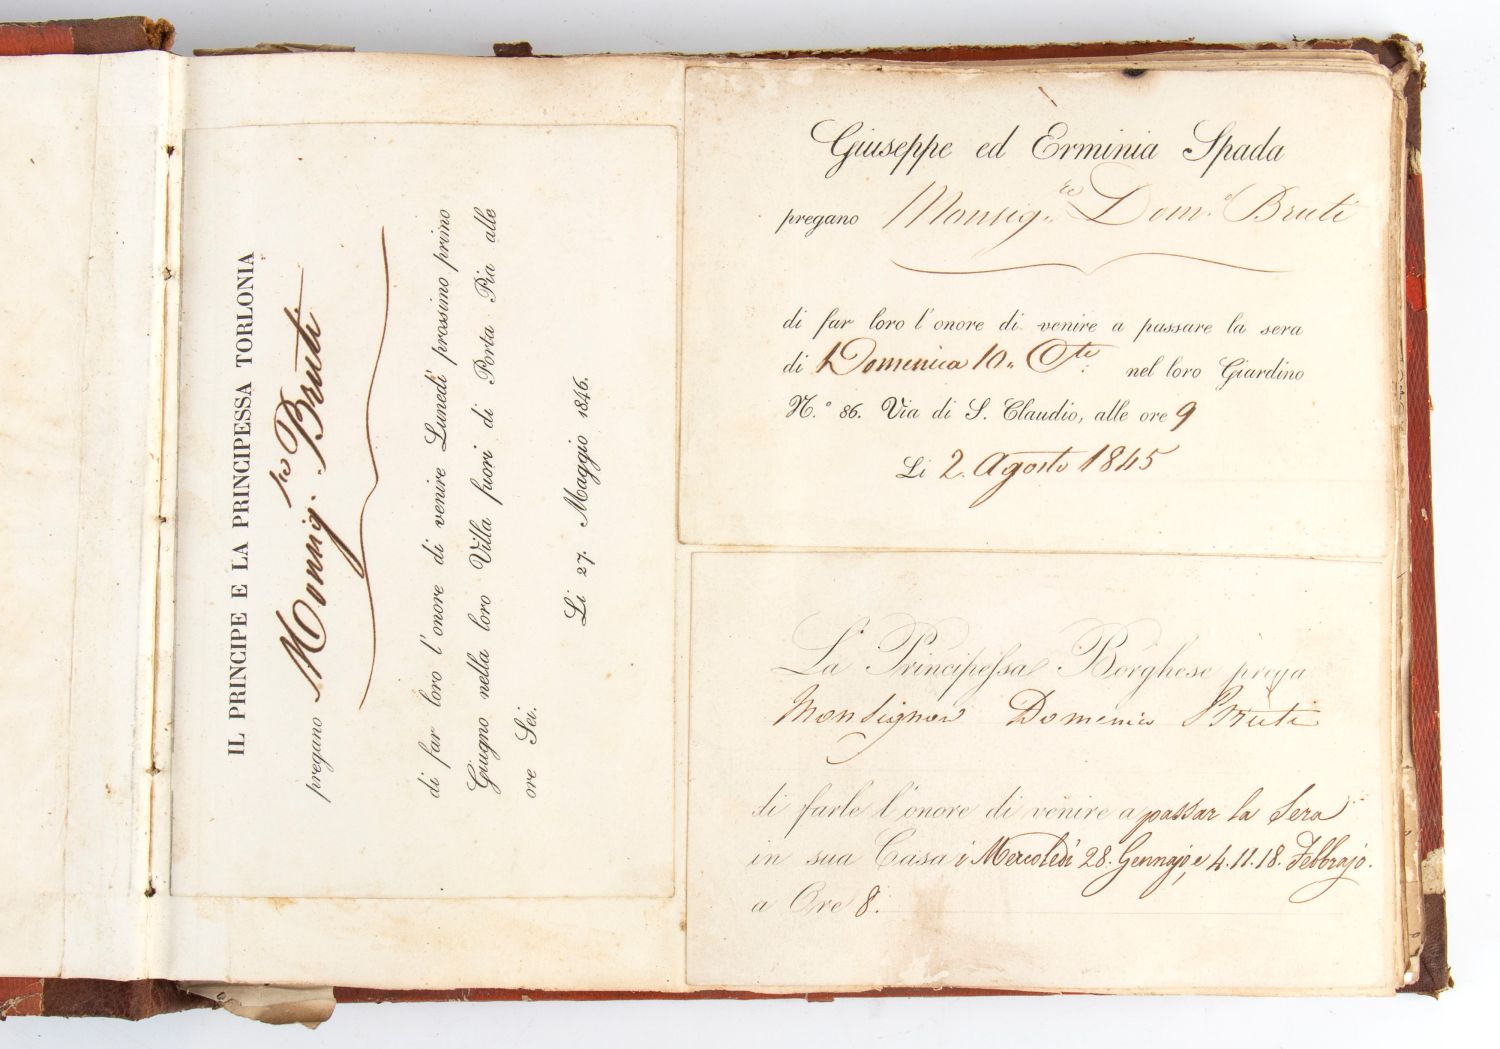 IL PRINCIPE E LA PRINCIPESSA TORLONIA
pregano Monsig.re Bruti
di far loro l'onore di venire Lunedì prossimo primo
Giugno nella loro Villa fuori di Porta Pia alle
ore Sei.
Li 27. Maggio 1846.
Giuseppe ed Erminia Spada
pregano Monsig.re Dom.o Bruti
di far loro l'onore di venire a passare la sera
di Domenica 10 nel loro Giardino
N.° 86. Via di S. Claudio, alle ore 9
Li 2. Agosto 1845
La Principessa Borghese prega
Monsignor Domenico Bruti
di farle l'onore di venire a passar la Sera
in sua Casa i Mercoledì 28. Gennajo, e 4. 11. 18. Febbrajo.
a Ore 8.